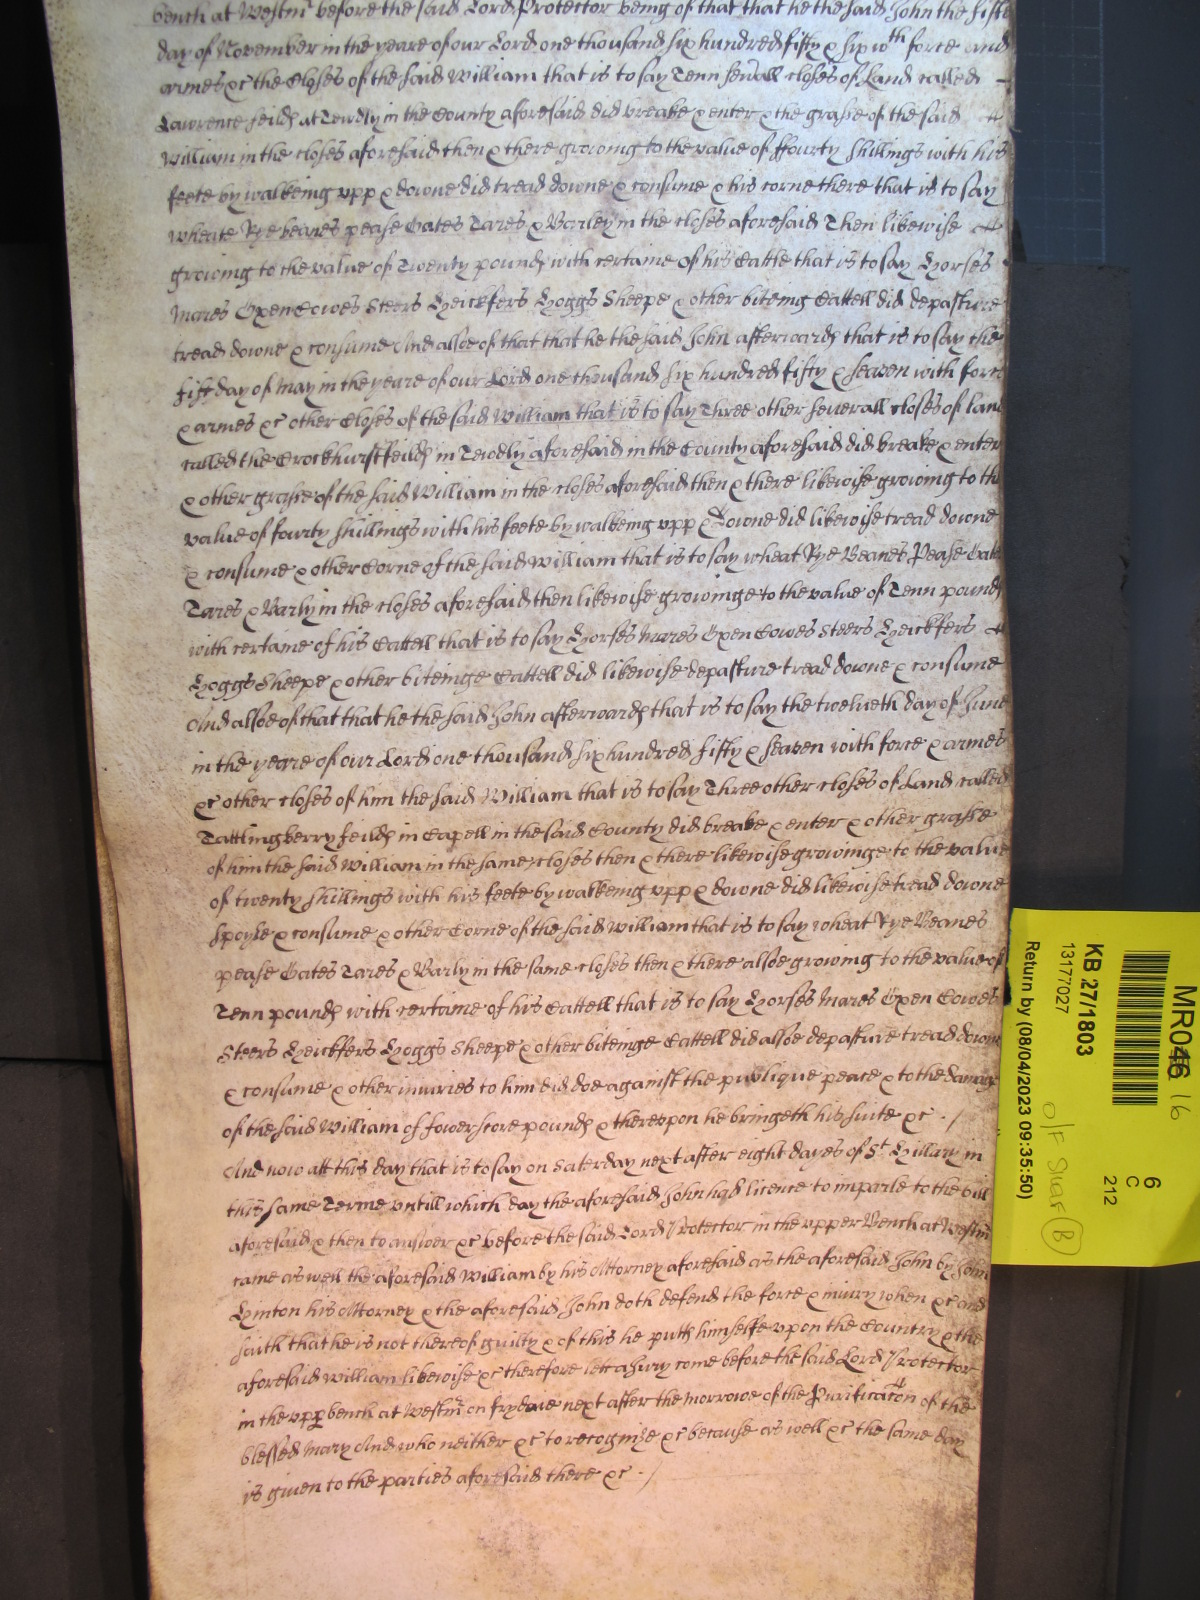 bench at Westmr before the said Lord Protector being of that that he the said John the fifte
day of November in the yeare of our Lord one thousand six hundred fifty & six wth force and
armes &c the Closes of the said William that is to say Tenn severall closes of Land called
Lawrence feilds at Tewdly in the County aforesaid did breake & enter & the grasse of the said
William in the closes aforesaid then & there growing to the value of ffourty shillings with his
feete by walkeing upp & downe did tread downe & consume & his corne there that is to say
wheate Rye beanes pease Oates Tares & Barley in the closes aforesaid Then likewise
growing to the value of Twenty pounds with certaine of his Cattle that is to say Horses
Mares Oxen Cowes Steers Heickfers Hoggs Sheepe & other biteing Cattell did depasture
tread downe & consume And alsoe of that that he the said John afterwards that is to say the
fift day of May in the yeare of our Lord one thousand six hundred fifty & seaven with force
& armes &c other Closes of the said William that is to say Three other severall closes of land
called the Crockhurst feilds in Tewdly aforesaid in the County aforesaid did breake & enter
& other grasse of the said William in the closes aforesaid then & there likewise growing to the
value of fourty shillings with his feete by walkeing upp & downe did likewise tread downe
& consume & other Corne of the said William that is to say wheat Rye Beanes Pease Oates
Tares & Barly in the closes aforesaid then likewise growinge to the value of Tenn pounds
with certaine of his Cattell that is to say Horses Mares Oxen Cowes Steers Heickfers
Hoggs Sheepe & other biteinge Cattell did likewise depasture tread downe & consume
And alsoe of that that he the said John afterwards that is to say the twelveth day of June
in the yeare of our Lord one thousand six hundred fifty & seaven with force & armes
&c other closes of him the said William that is to say Three other closes of Land called
Tattlingberry feilds in Capell in the said County did breake & enter & other grasse
of him the said William in the same closes then & there likewise growinge to the value
of twenty shillings with his feete by walkeing upp & downe did likewise tread downe
spoyle & consume & other Corne of the said William that is to say wheat Rye Beanes
pease Oates Tares & Barly in the same closes then & there alsoe growing to the value of
Tenn pounds with certaine of his Cattell that is to say Horses Mares Oxen Cowes
Steers Heickfers Hoggs Sheepe & other biteinge Cattell did alsoe depasture tread downe
& consume & other iniuries to him did doe against the publique peace & to the damage
of the said William of fower score pounds & thereupon he bringeth his suite &c ./
And now att this day that is to say on Saterday next after eight dayes of St Hillary in
this same Terme untill which day the aforesaid John had licence to imparle to the bill
aforesaid & then to answer &c before the said Lord Protector in the upper Bench at Westmr
came as well the aforesaid William by his Attorney aforesaid as the aforesaid John by John
Lynton his Attorney & the aforesaid John doth defend the force & iniury when &c and
saith that he is not thereof guilty & of this he putts himselfe upon the Country & the
aforesaid William likewise &c therefore lett a Jury come before the said Lord Protector
in the upp bench at Westmr on frydaie next after the morrowe of the Purificacon of the
blessed Mary And who neither &c to recognize &c because as well &c the same day
is given to the parties aforesaid there &c ./
MR046 16
6
C
212
KB 27/1803
13177027
Return by (08/04/2023 09:35:50)
O/F Shar B